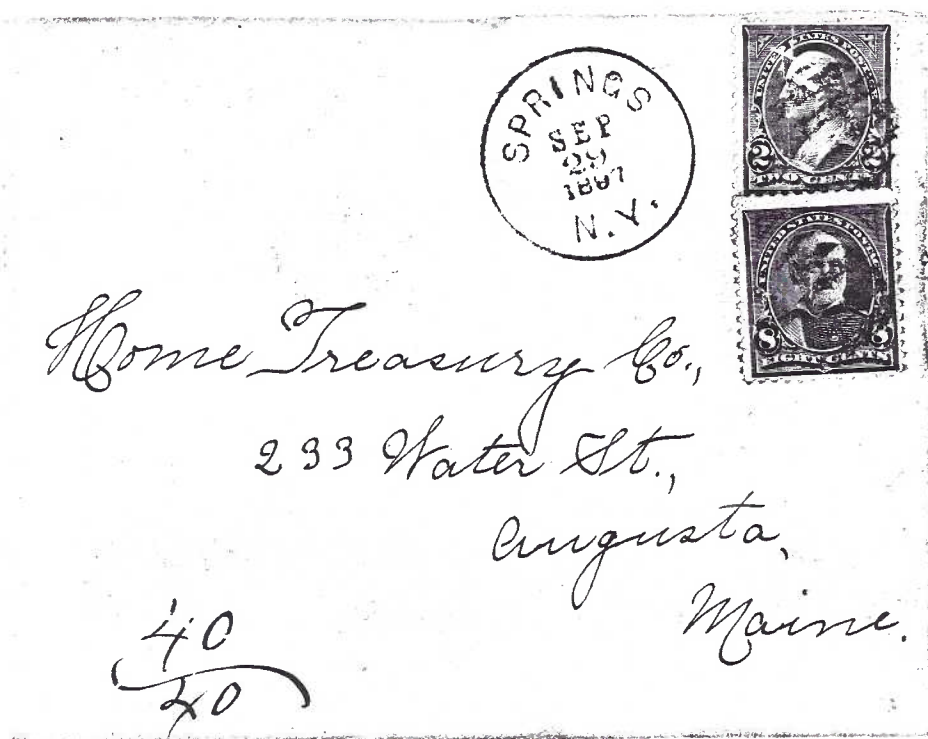 SPRINGS
SEP
29
1897
N.Y.
UNITED STATES POSTAGE
2 2
TWO CENTS
UNITED STATES POSTAGE
8 8
EIGHT CENTS
Home Treasury Co.,
233 Water St.,
Augusta,
Maine.
40
40